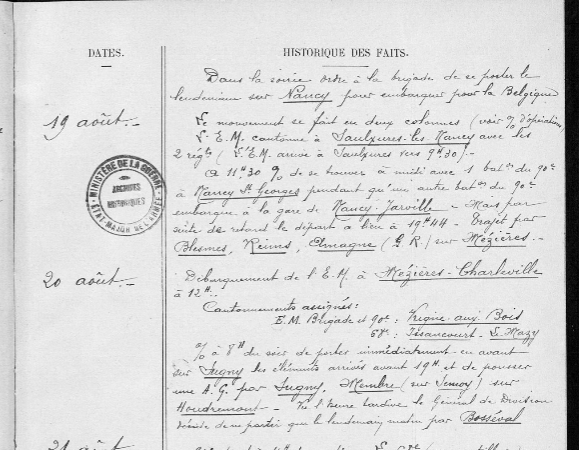 DATES.
HISTORIQUE DES FAITS.
Dans la soirée ordre à la brigade de se porter le
lendemain sur Nancy pour embarquer pour la Belgique
19 août.-
Le mouvement se fait en deux colonnes (voir O/ d'opérations)
L'E.M. cantonne à Saulxures-les-Nancy avec les
2 régts (L'E.M. arrive à Saulxures vers 9H30).-
A 11H30 O/ de se trouver à midi avec 1 baton du 90e
à Nancy St Georges pendant qu'un autre baton du 90e
embarque à la gare de Nancy-Jarville - Mais par
suite de retard le départ a lieu à 19H44 - Trajet par
Blesmes, Reims, Amagne (G.R.) sur Mézières.-
MINISTÈRE DE LA GUERRE
ARCHIVES
HISTORIQUES
ÉTAT-MAJOR DE L'ARMÉE
20 août.-
Débarquement de l'E.M. à Mézières-Charleville
à 12H.
Cantonnements assignés:
E.M. Brigade et 90e: Vrigne-aux-Bois
68e: Issancourt -
O/ à 8H du soir de porter immédiatement en avant
sur Sugny les éléments arrivés avant 19H et de pousser
une A.G. par Sugny, Membre (sur Semoy) sur
Houdremont - Vu l'heure tardive le Général de Division
décide de ne partir que le lendemain matin par Bosséval
21 août